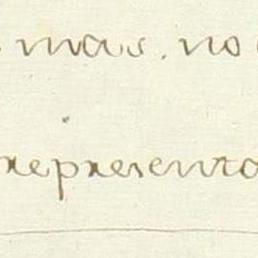 mas, no
representa